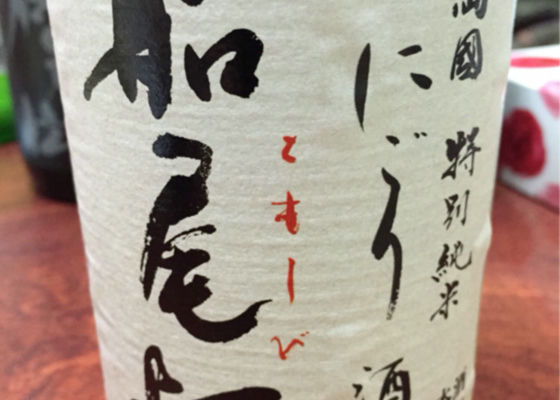 両國 特別純米
にごり酒
ともしび
船尾